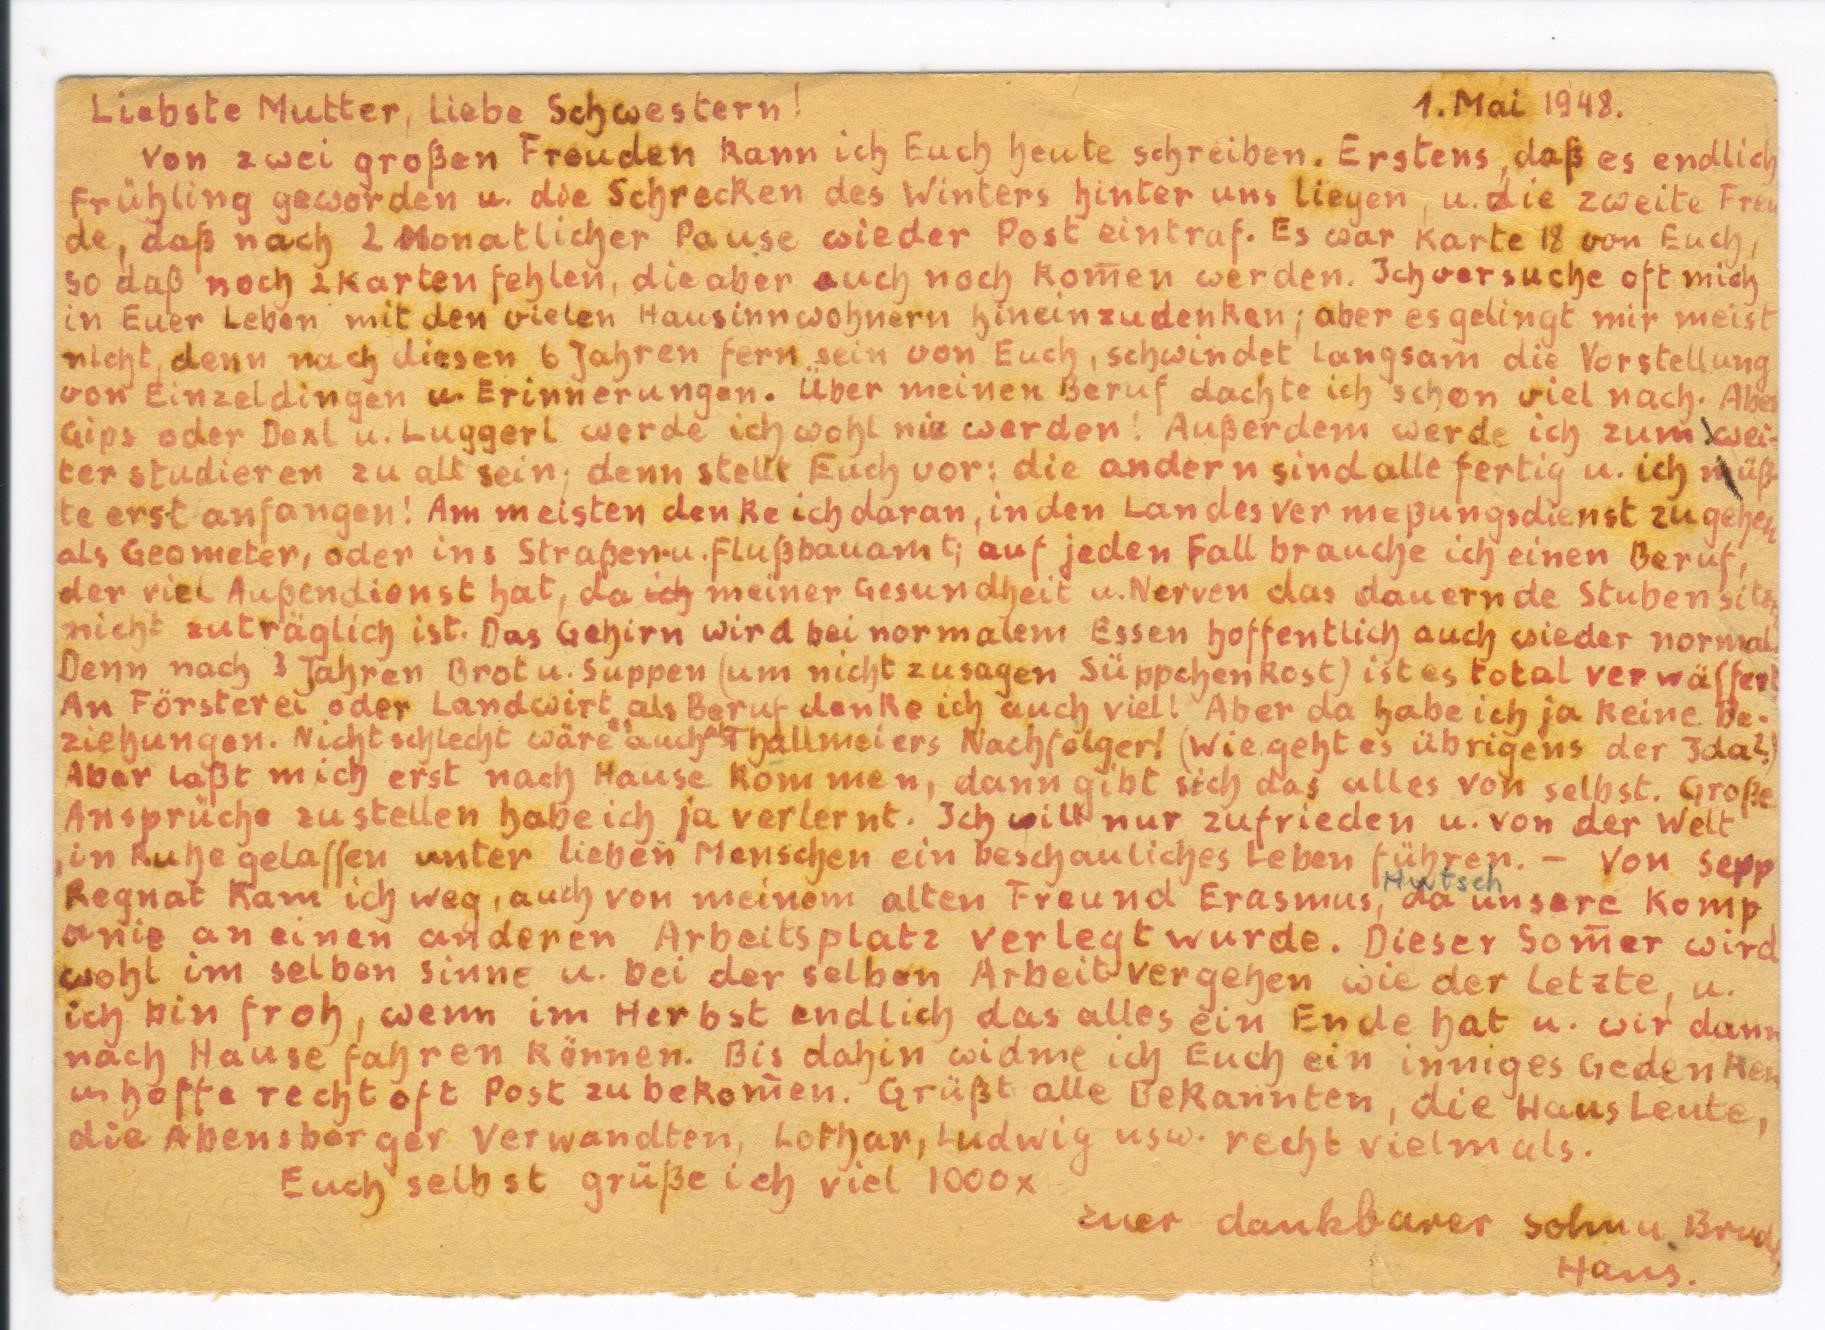 Liebste Mutter, liebe Schwestern! 1. Mai 1948.
Von zwei großen Freuden kann ich Euch heute schreiben. Erstens, daß es endlich
Frühling geworden u. die Schrecken des Winters hinter uns liegen, u. die zweite Freu
de, daß nach 2 Monatlicher Pause wieder Post eintraf. Es war Karte 18 von Euch,
so daß noch 2 Karten fehlen, die aber auch noch kom̅en werden. Ich versuche oft mich
in Euer Leben mit den vielen Hausinnwohnern hineinzudenken; aber es gelingt mir meist
nicht, denn nach diesen 6 Jahren fern sein von Euch, schwindet langsam die Vorstellung
von Einzeldingen u. Erinnerungen. Über meinen Beruf dachte ich schon viel nach. Aber
Gips oder Dexl u. Luggerl werde ich wohl nie werden! Außerdem werde ich zum wei-
ter studieren zu alt sein; denn stellt Euch vor: die andern sind alle fertig u. ich müß-
te erst anfangen! Am meisten denke ich daran, in den Landesvermeßungsdienst zu gehen
als Geometer, oder ins Straßen u. Flußbauamt; auf jeden Fall brauche ich einen Beruf,
der viel Außendienst hat, da ich meiner Gesundheit u. Nerven das dauernde Stubensitz
nicht zuträglich ist. Das Gehirn wird bei normalem Essen hoffentlich auch wieder normal.
Denn nach 3 Jahren Brot u. Suppen (um nicht zu sagen Süppchenkost) ist es total verwässert
An Försterei oder Landwirt als Beruf denke ich auch viel! Aber da habe ich ja keine Be-
ziehungen. Nicht schlecht wäre auch als Thallmeiers Nachfolger! (Wie geht es übrigens der Ida?)
Aber laßt mich erst nach Hause kommen, dann gibt sich das alles von selbst. Große
Ansprüche zu stellen habe ich ja verlernt. Ich will nur zufrieden u. von der Welt
in Ruhe gelassen unter lieben Menschen ein beschauliches Leben führen. – Von Sepp
Regnat kam ich weg, auch von meinem alten Freund Erasmus, Hutsch da unsere Komp
anie an einen anderen Arbeitsplatz verlegt wurde. Dieser Som̅er wird
wohl im selben Sinne u. bei der selben Arbeit vergehen wie der letzte, u.
ich bin froh, wenn im Herbst endlich das alles ein Ende hat u. wir dann
nach Hause fahren können. Bis dahin widme ich Euch ein inniges Gedenken
u. hoffe recht oft Post zu bekom̅en. Grüßt alle Bekannten, die Hausleute,
die Abensberger Verwandten, Lothar, Ludwig usw. recht vielmals.
Euch selbst grüße ich viel 1000x
Euer dankbarer Sohn u. Bruder
Hans.